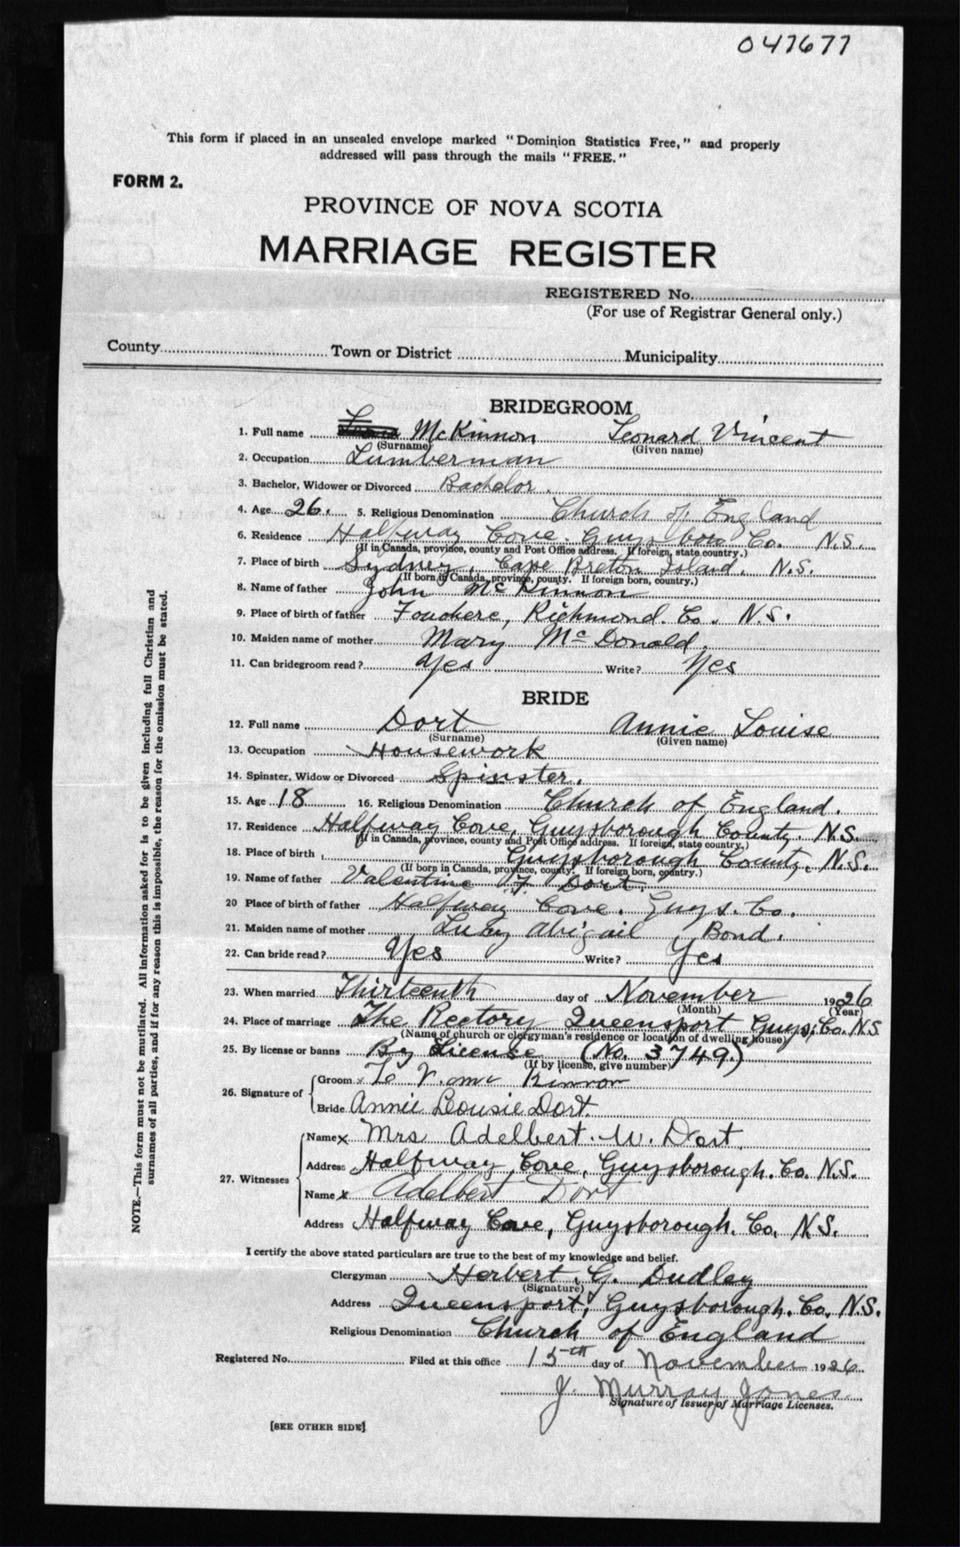 047677
This form if placed in an unsealed envelope marked "Dominion Statistics Free," and properly
addressed will pass through the mails "FREE."
FORM 2.
PROVINCE OF NOVA SCOTIA
MARRIAGE REGISTER
REGISTERED No.
(For use of Registrar General only.)
County Town or District Municipality
BRIDEGROOM
1. Full name McKinnon Leonard Vincent
(Surname) (Given name)
2. Occupation Lumberman
3. Bachelor, Widower or Divorced Bachelor.
4. Age 26. 5. Religious Denomination Church of England
6. Residence Halfway Cove. Guysboro Co. N.S.
(If in Canada, province, county and Post Office address. If foreign, state country.)
7. Place of birth Sydney, Cape Breton Island. N.S.
(If born in Canada, province, county. If foreign born, country.)
8. Name of father John McKinnon
9. Place of birth of father Fouchere, Richmond. Co. N.S.
10. Maiden name of mother Mary McDonald.
11. Can bridegroom read? Yes Write? Yes
BRIDE
12. Full name Dort Annie Louise
(Surname) (Given name)
13. Occupation Housework
14. Spinster, Widow or Divorced Spinster.
15. Age 18 16. Religious Denomination Church of England.
17. Residence Halfway Cove, Guysborough County. N.S.
(If in Canada, province, county and Post Office address. If foreign, state country.)
18. Place of birth Guysborough County, N.S.
(If born in Canada, province, county. If foreign born, country.)
19. Name of father Valentine F. Dort.
20 Place of birth of father Halfway Cove. Guys. Co.
21. Maiden name of mother Lucy Abigail Bond.
22. Can bride read? Yes Write? Yes
23. When married Thirteenth day of November 1926
(Month) (Year)
24. Place of marriage The Rectory Queensport Guys. Co. N.S
(Name of church or clergyman's residence or location of dwelling house)
25. By license or banns By License (No. 3749.)
(If by license, give number)
26. Signature of Groom x Le V. Mc Kinnon
Bride Annie Lousie Dort.
27. Witnesses Name x Mrs Adelbert. W. Dort
Address Halfway Cove, Guysborough. Co. N.S.
Name x Adelbert Dort
Address Halfway Cove, Guysborough. Co. N.S.
I certify the above stated particulars are true to the best of my knowledge and belief.
Clergyman Herbert G. Dudley
(Signature)
Address Queensport, Guysborough. Co. N.S.
Religious Denomination Church of England
Registered No. Filed at this office 15th day of November 1926
J. Murray Jones
Signature of Issuer of Marriage Licenses.
[SEE OTHER SIDE]
NOTE.—This form must not be mutilated. All information asked for is to be given including full Christian and
surnames of all parties, and if for any reason this is impossible, the reason for the omission must be stated.